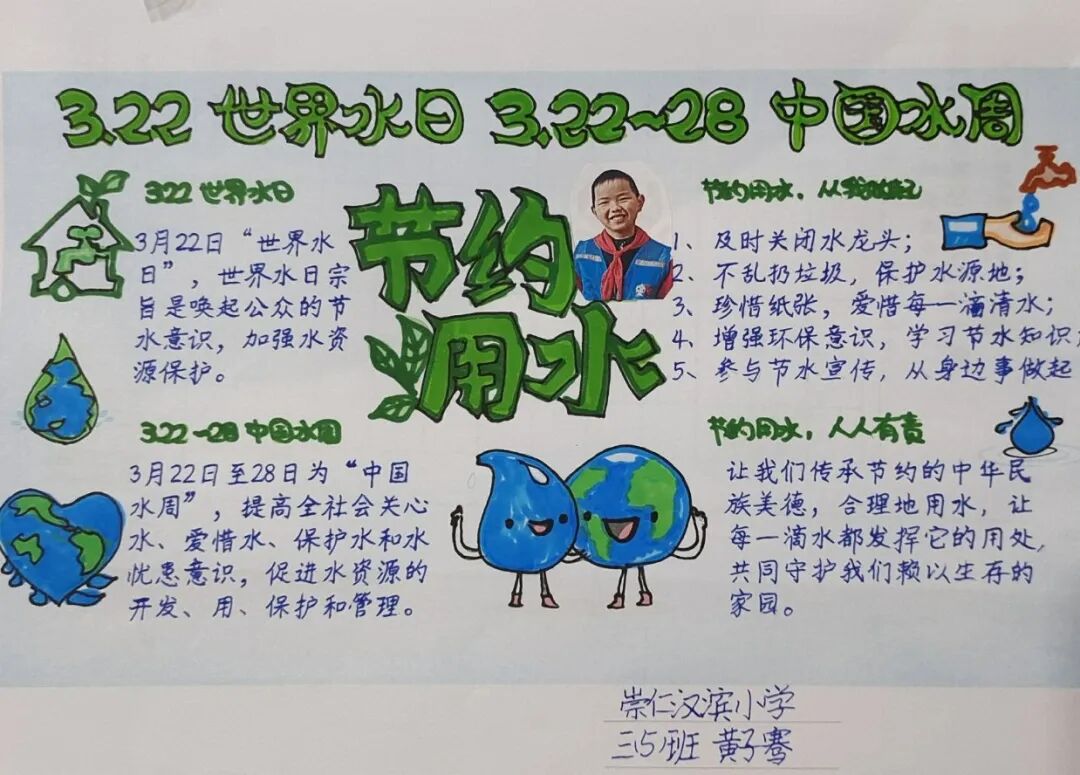 3.22 世界水日 3.22~28 中国水周
3.22 世界水日
3月22日“世界水
日”,世界水日宗
旨是唤起公众的节
水意识,加强水资
源保护。
节约
用水
节约用水,从我做起
1、及时关闭水龙头;
2、不乱扔垃圾,保护水源地;
3、珍惜纸张,爱惜每一滴清水;
4、增强环保意识,学习节水知识;
5、参与节水宣传,从身边事做起
3.22-28 中国水周
3月22日至28日为“中国
水周”,提高全社会关心
水、爱惜水、保护水和水
忧患意识,促进水资源的
开发、用、保护和管理。
节约用水,人人有责
让我们传承节约的中华民
族美德,合理地用水,让
每一滴水都发挥它的用处,
共同守护我们赖以生存的
家园。
崇仁汉滨小学
三.5班 黄子骞